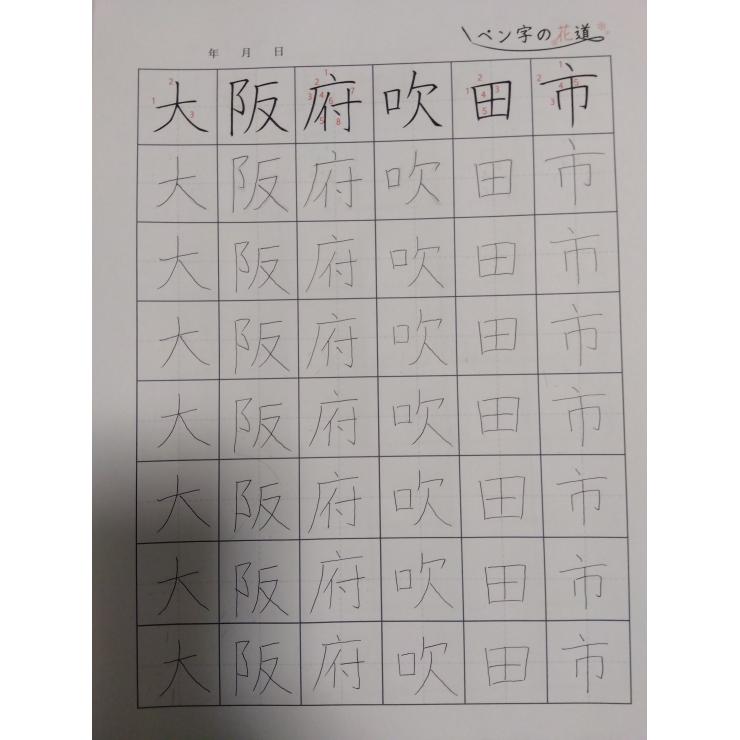 ペン字の花道
年 月 日
大阪府吹田市
大阪府吹田市
大阪府吹田市
大阪府吹田市
大阪府吹田市
大阪府吹田市
大阪府吹田市
大阪府吹田市